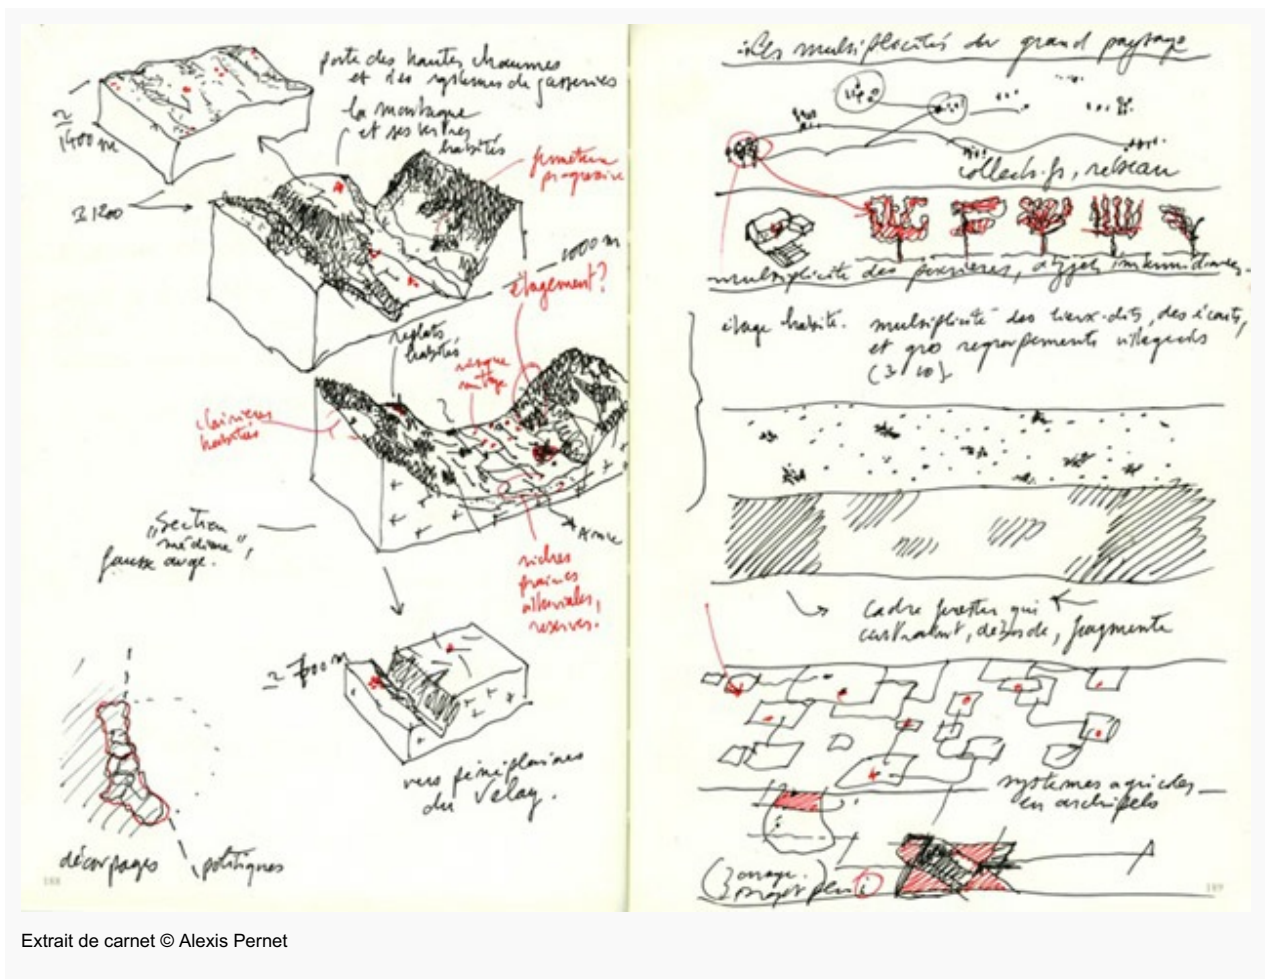 porte des hautes chaumes
et des systèmes de gasseries
la montagne
et ses
habités
≃
1400 m
fermeture
progressive
1200
1000 m
étagement?
replats
habités
risque
mitage
clairières
habitées
"Section
médiane",
fausse auge.
riches
plaines
alluviales,
reserves.
≃ 700 m
vers pénéplaines
du Velay.
découpages
politiques
188
Les multiplicités du grand paysage
collectifs, réseau
multiplicité des
étage habité. multiplicité des lieux-dits, des écarts,
et gros regroupements villageois
cadre forestier qui
déborde, fragmente
systèmes agricoles
en archipels
189
Extrait de carnet © Alexis Pernet